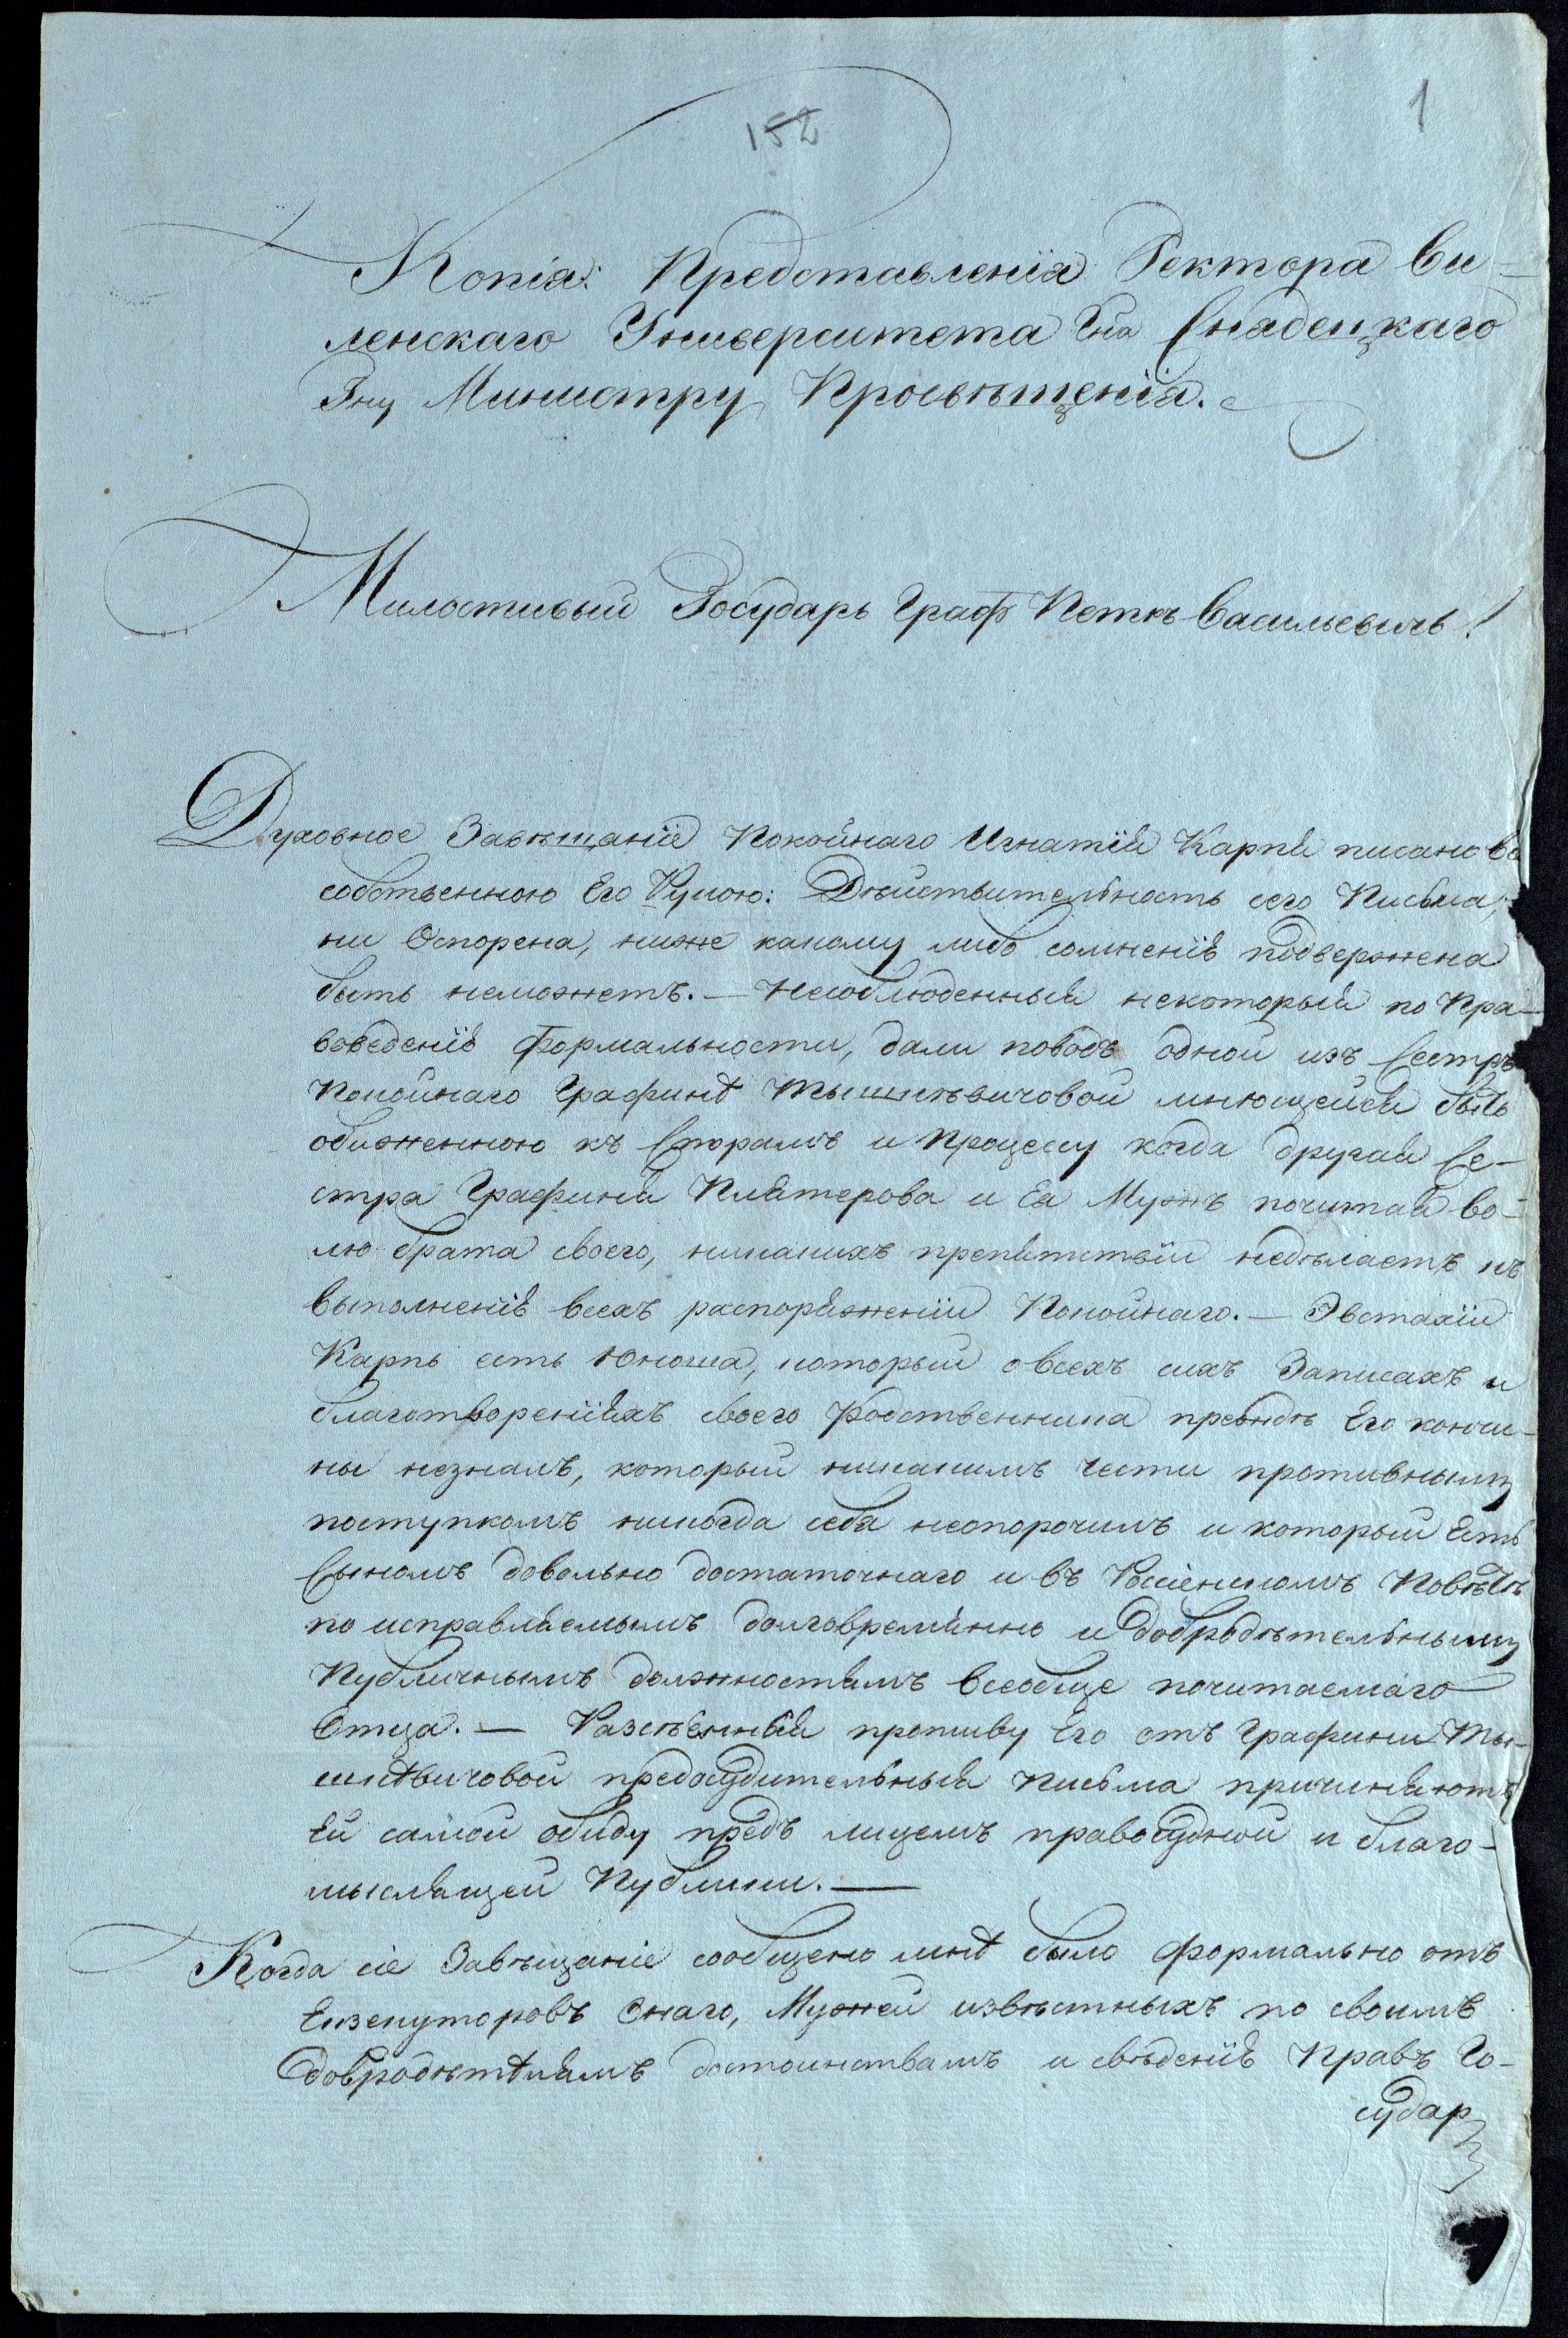 152
1
Копія: Представленія Ректора Ви-
ленскаго Университета Гна Снядецкаго
Гну Министру Просвѣщенія.
Милостивый Государь Графъ Петръ Васильевичь!
Духовное Завѣщаніе Покойнаго Игнатія Карпя писано
собственною Его Рукою: Дѣйствительность сего Письма,
ни Оспорена, ниже какому либо сомненію подвержена
быть неможетъ. — Несоблюденныя некоторыя по Пра-
воведенію формальности, дали поводъ одной изъ Сестръ
Покойнаго Графинѣ Тышкѣвичовой мнющейся быть
обиженною къ Спорамъ и процессу когда другая Се-
стра Графиня Плятерова и Ея Мужъ почитая во-
лю брата своего, никакихъ препятствіи недѣлаетъ къ
выполненію всехъ распоряженіи Покойнаго. — Эвстахіи
Карпь есть Юноша, которыи о всехъ сихъ Записахъ и
благотвореніяхъ своего Родственника преждѣ Его кончи-
ны незналъ, которыи никакимъ чести противнымъ
поступкомъ никогда себя неопорочилъ и которыи Есть
Сыномъ довольно достаточнаго и въ Россіенскомъ Повѣтѣ
по исправляемымъ долговремянно и добродѣтельнымъ
Публичнымъ должностямъ всеобще почитаемаго
Отца. — Разсѣенныя противу Его отъ Графини Ты-
шкѣвичовой предосудительныя Письма причиняютъ
Ей самой обиду предъ лицемъ правосудной и благо-
мыслящей Публики. —
Когда сіе Завѣщаніе сообщено мнѣ было формально отъ
Екзекуторовъ Онаго, Мужей извѣстныхъ по своимъ
добродѣтѣлямъ достоинствамъ и свѣденію Правъ Го-
судар